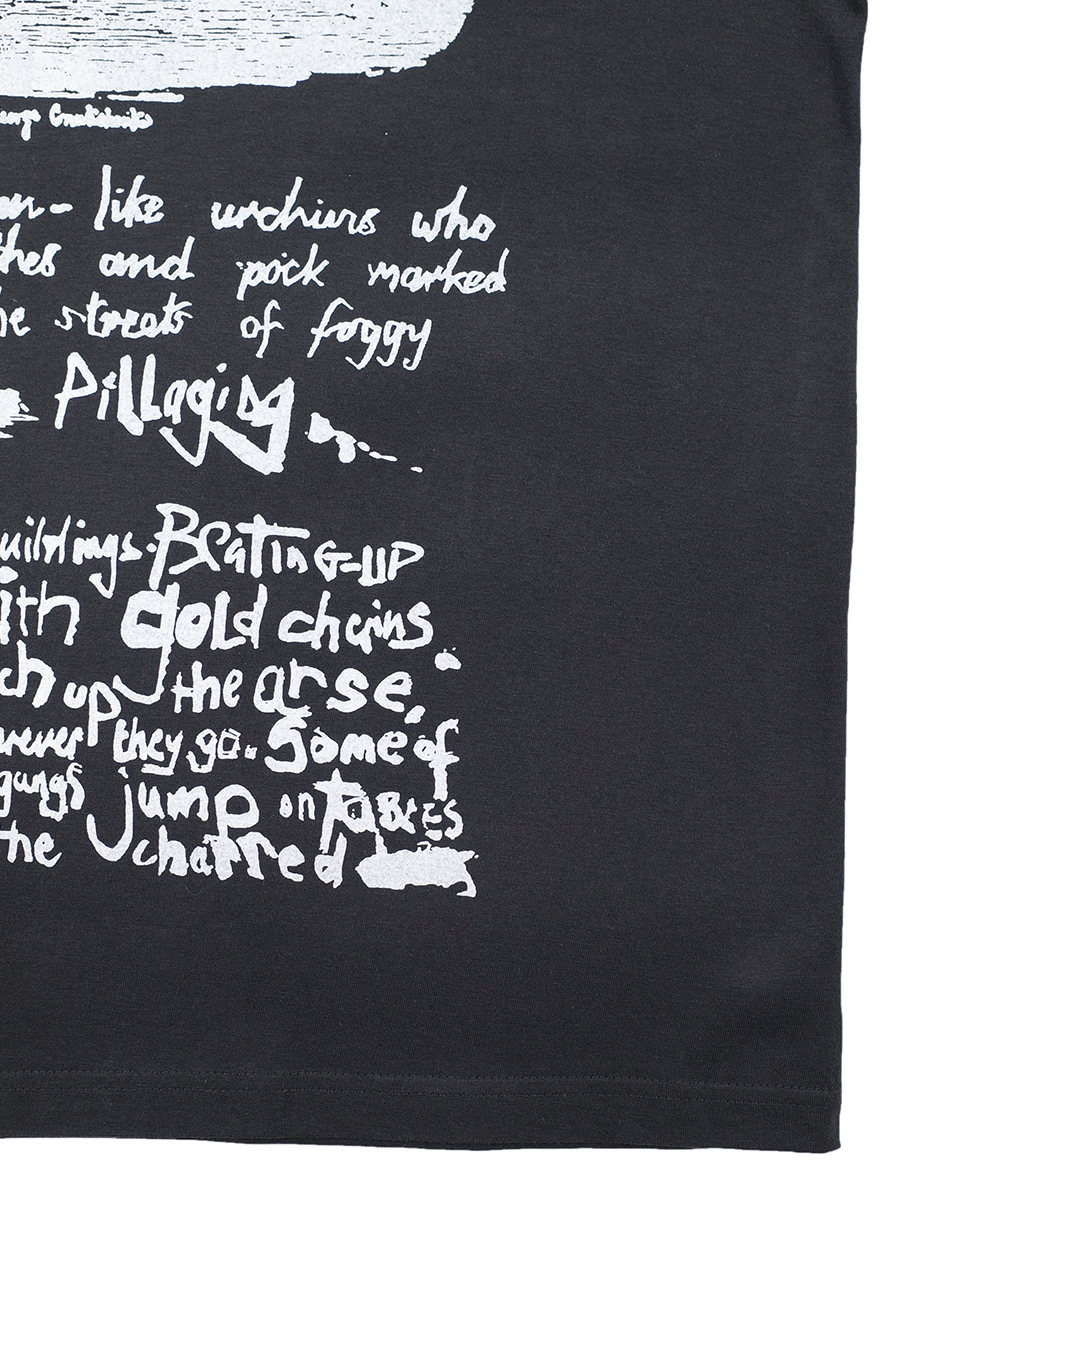 like urchins who
thes and pock marked
he streets of foggy
Pillaging
uildings. Beating-UP
ith gold chains
ch up the arse,
rever they go. Some of
gangs jump on
the charred